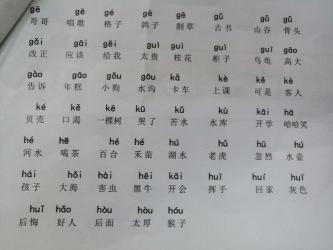 gē gē gé gē gē gǔ gǔ gǔ
哥哥 唱歌 格子 鸽子 割草 古书 山谷 骨头
gǎi gāi gěi guì guì guì guī gāo
改正 应该 给我 太贵 桂花 柜子 乌龟 高大
gào gāo gǒu gōu kǎ kè kě kè
告诉 年糕 小狗 水沟 卡车 上课 可是 客人
ké kě kē kū kǔ kù kāi hā
贝壳 口渴 一棵树 哭了 苦水 水库 开学 哈哈笑
hé hē hé hé hú hǔ hū hú
河水 喝茶 百合 禾苗 湖水 老虎 忽然 水壶
hái hǎi hài hēi huì huī huí huī
孩子 大海 害虫 黑牛 开会 挥手 回家 灰色
huǐ hǎo hòu hòu hóu
后悔 好人 后面 太厚 猴子